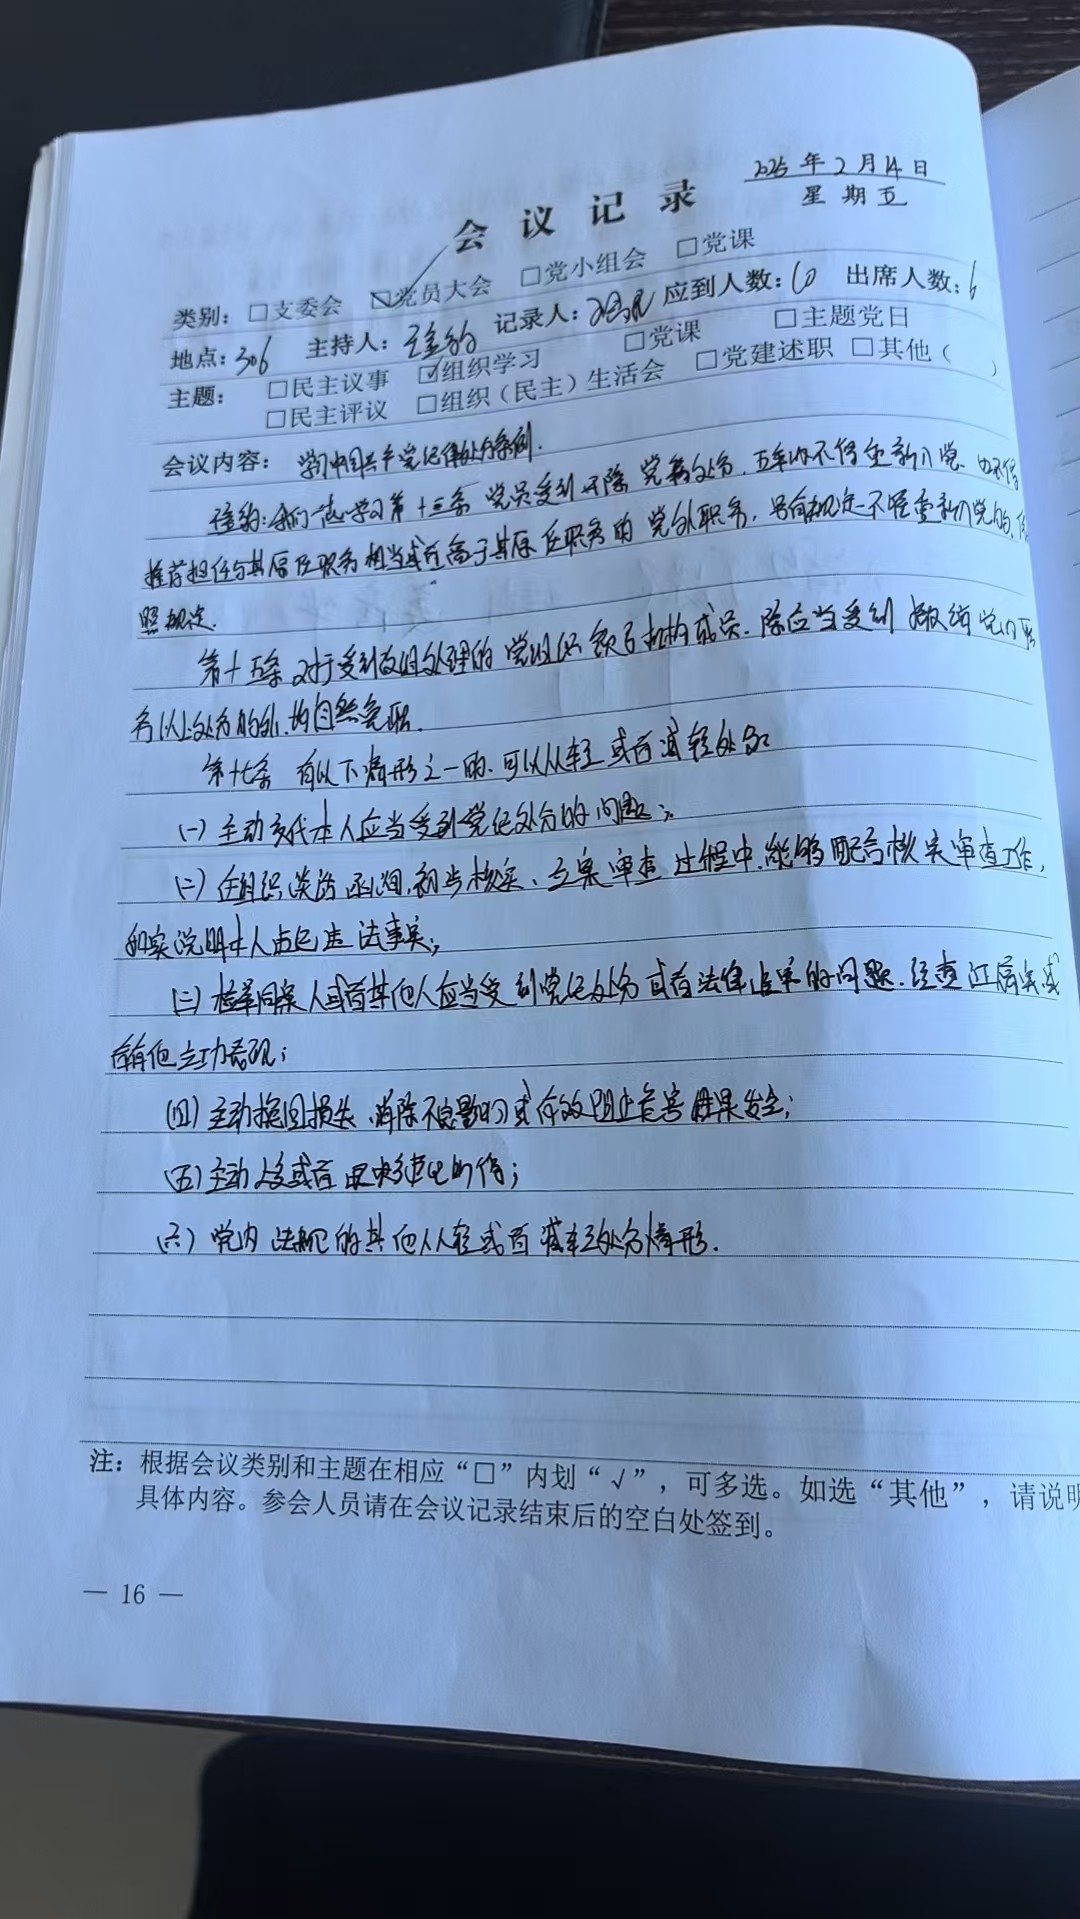 2025年2月14日
星期五
会议记录
类别：□支委会 ☑党员大会 □党小组会 □党课
地点：306 主持人： 记录人： 应到人数： 出席人数：6
主题： □民主议事 ☑组织学习 □党课 □主题党日
□民主评议 □组织（民主）生活会 □党建述职 □其他（ ）
会议内容： 学习中国共产党纪律处分条例.
我们一起学习第十三条 党员受到开除党籍处分，五年内不得重新入党、也不得
推荐担任与其原任职务相当或者高于其原任职务的党外职务，另有规定不准重新入党的，依
照规定.
第十五条 对于受到改组处理的党组织领导机构成员，除应当受到撤销党内职
务以上处分的外，均自然免职.
第十七条 有以下情形之一的、可以从轻或者减轻处分：
（一）主动交代本人应当受到党纪处分的问题；
（二）在组织谈话函询，初步核实、立案审查过程中，能够配合核实审查工作，
如实说明本人违纪违法事实；
（三）检举同案人或者其他人应当受到党纪处分或者法律追究的问题，经查证属实或
者有他立功表现；
（四）主动挽回损失，消除不良影响或有效阻止危害结果发生；
（五）主动上交或者退赔违纪所得；
（六）党内法规的其他从轻或者减轻处分情形.
注：根据会议类别和主题在相应“□”内划“√”，可多选。如选“其他”，请说明
具体内容。参会人员请在会议记录结束后的空白处签到。
— 16 —